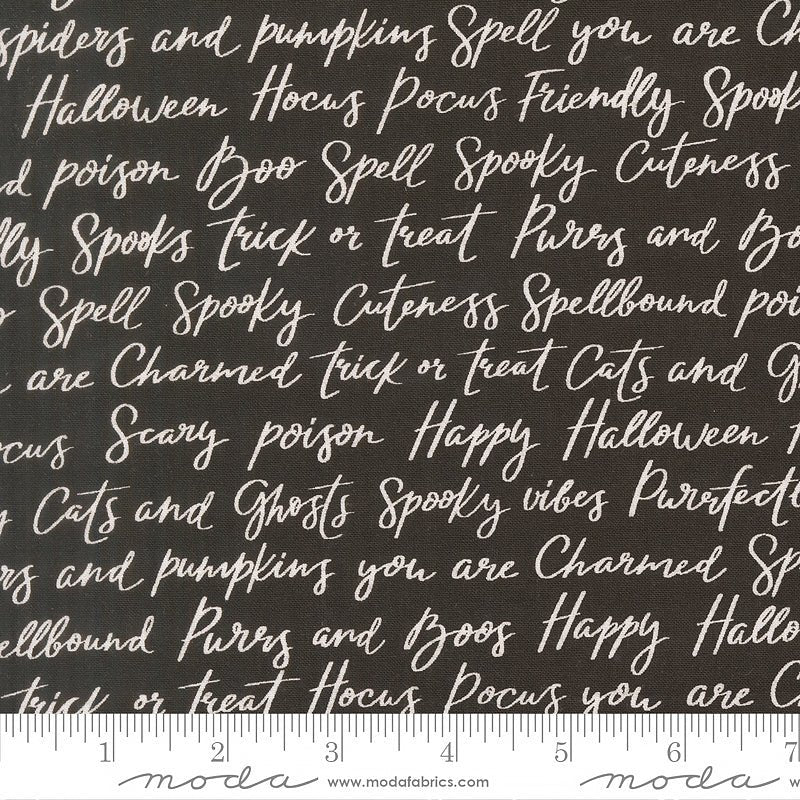 spiders and pumpkins Spell you are Ch
Halloween Hocus Pocus Friendly Spook
nd poison Boo Spell Spooky Cuteness
lly Spooks trick or treat Purrs and Bo
o Spell Spooky Cuteness Spellbound poi
are Charmed trick or treat Cats and G
ocus Scary poison Happy Halloween
y Cats and Ghosts Spooky vibes Purrfectl
rs and pumpkins you are Charmed Sp
ellbound Purrs and Boos Happy Hallo
trick or treat Hocus Pocus you are C
1 2 3 4 5 6 7
moda www.modafabrics.com moda w